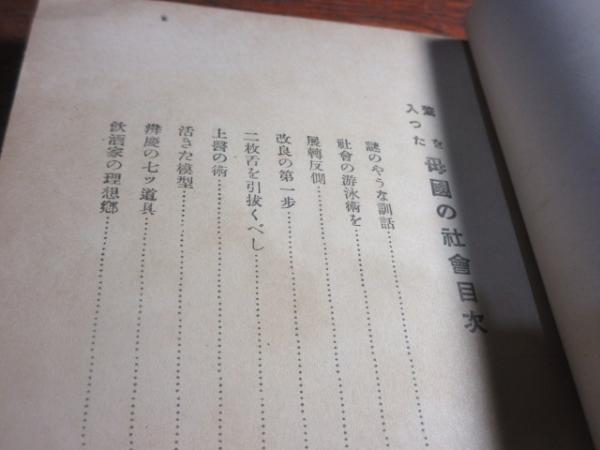 鼇を
入つた
母國の社會目次
謎のやうな訓話
社會の游泳術を
展轉反側
改良の第一步
二枚舌を引拔くべし
上醫の術
活きた模型
辨慶の七ッ道具
飮酒家の理想鄕